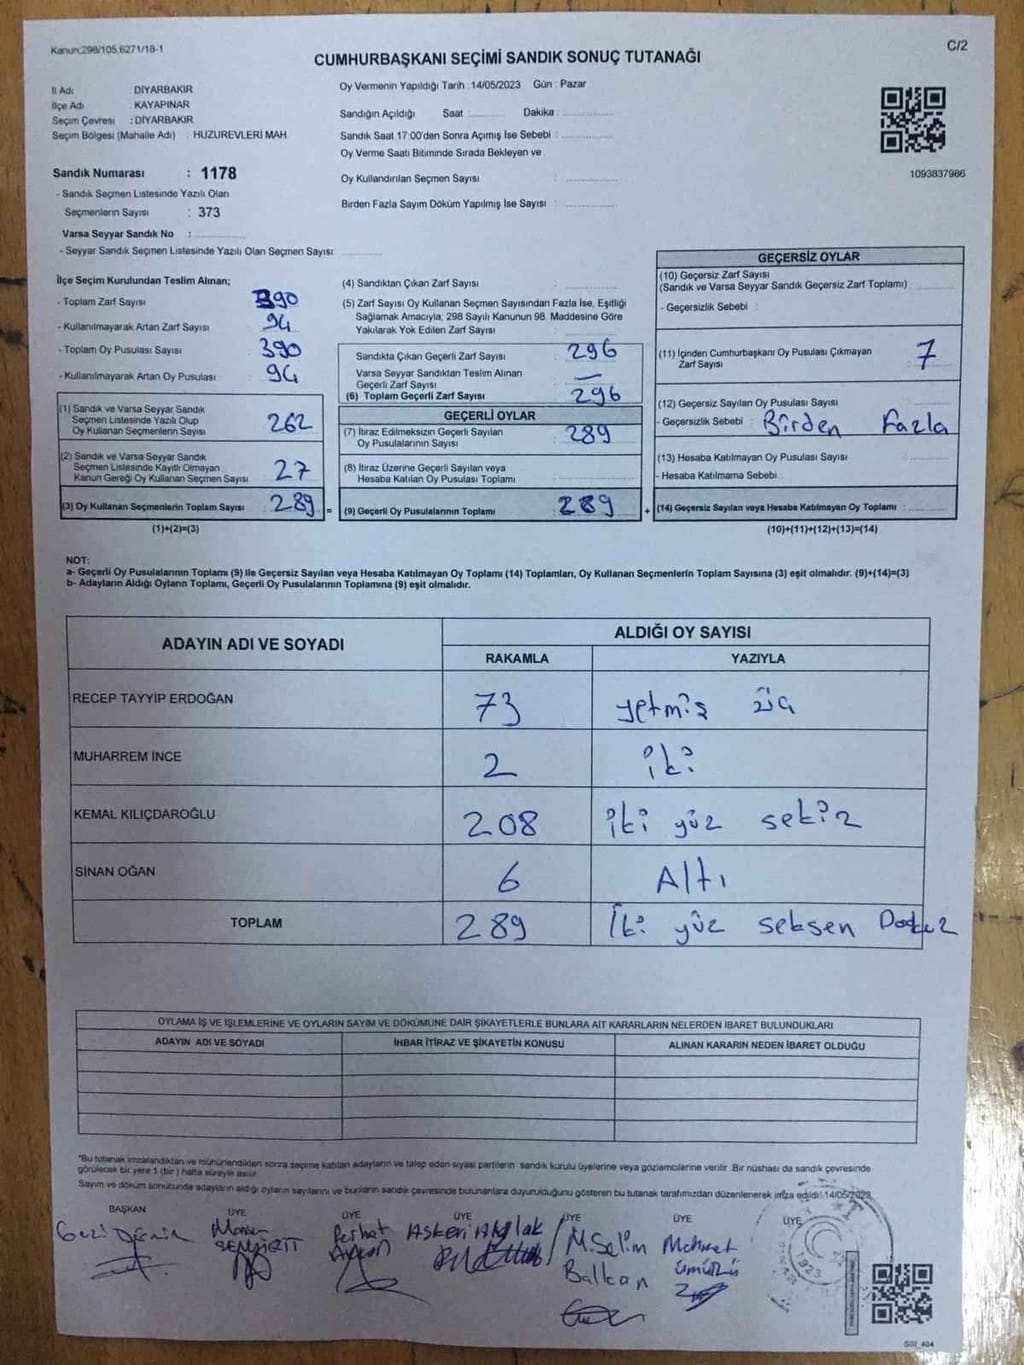 Kanun:298/105,6271/18-1
C/2
CUMHURBAŞKANI SEÇİMİ SANDIK SONUÇ TUTANAĞI
İl Adı DİYARBAKIR
İlçe Adı : KAYAPINAR
Seçim Çevresi : DİYARBAKIR
Seçim Bölgesi (Mahalle Adı) : HUZUREVLERİ MAH.
Sandık Numarası : 1178
- Sandık Seçmen Listesinde Yazılı Olan
Seçmenlerin Sayısı : 373
Varsa Seyyar Sandık No :
- Seyyar Sandık Seçmen Listesinde Yazılı Olan Seçmen Sayısı:
Oy Vermenin Yapıldığı Tarih : 14/05/2023 Gün : Pazar
Sandığın Açıldığı Saat Dakika :
Sandık Saat 17:00'den Sonra Açımış İse Sebebi :
Oy Verme Saati Bitiminde Sırada Bekleyen ve
Oy Kullandırılan Seçmen Sayısı :
Birden Fazla Sayım Döküm Yapılmış İse Sayısı :
1093837986
İlçe Seçim Kurulundan Teslim Alınan;
- Toplam Zarf Sayısı : 390
- Kullanılmayarak Artan Zarf Sayısı : 94
- Toplam Oy Pusulası Sayısı : 390
- Kullanılmayarak Artan Oy Pusulası : 94
(1) Sandık ve Varsa Seyyar Sandık
Seçmen Listesinde Yazılı Olup
Oy Kullanan Seçmenlerin Sayısı 262
(2) Sandık ve Varsa Seyyar Sandık
Seçmen Listesinde Kayıtlı Olmayan
Kanun Gereği Oy Kullanan Seçmen Sayısı 27
(3) Oy Kullanan Seçmenlerin Toplam Sayısı 289 =
(1)+(2)=(3)
(4) Sandıktan Çıkan Zarf Sayısı :
(5) Zarf Sayısı Oy Kullanan Seçmen Sayısından Fazla İse, Eşitliği
Sağlamak Amacıyla; 298 Sayılı Kanunun 98. Maddesine Göre
Yakılarak Yok Edilen Zarf Sayısı :
Sandıkta Çıkan Geçerli Zarf Sayısı : 296
Varsa Seyyar Sandıktan Teslim Alınan
Geçerli Zarf Sayısı : —
(6) Toplam Geçerli Zarf Sayısı : 296
GEÇERLİ OYLAR
(7) İtiraz Edilmeksizin Geçerli Sayılan
Oy Pusulalarının Sayısı : 289
(8) İtiraz Üzerine Geçerli Sayılan veya
Hesaba Katılan Oy Pusulası Toplamı :
(9) Geçerli Oy Pusulalarının Toplamı : 289 +
GEÇERSİZ OYLAR
(10) Geçersiz Zarf Sayısı
(Sandık ve Varsa Seyyar Sandık Geçersiz Zarf Toplamı) :
- Geçersizlik Sebebi :
(11) İçinden Cumhurbaşkanı Oy Pusulası Çıkmayan
Zarf Sayısı : 7
(12) Geçersiz Sayılan Oy Pusulası Sayısı :
- Geçersizlik Sebebi : Birden Fazla
(13) Hesaba Katılmayan Oy Pusulası Sayısı :
- Hesaba Katılmama Sebebi :
(14) Geçersiz Sayılan veya Hesaba Katılmayan Oy Toplamı :
(10)+(11)+(12)+(13)=(14)
NOT:
a- Geçerli Oy Pusulalarının Toplamı (9) ile Geçersiz Sayılan veya Hesaba Katılmayan Oy Toplamı (14) Toplamları, Oy Kullanan Seçmenlerin Toplam Sayısına (3) eşit olmalıdır. (9)+(14)=(3)
b- Adayların Aldığı Oyların Toplamı, Geçerli Oy Pusulalarının Toplamına (9) eşit olmalıdır.
ADAYIN ADI VE SOYADI ALDIĞI OY SAYISI
RAKAMLA YAZIYLA
RECEP TAYYİP ERDOĞAN 73 yetmiş üç
MUHARREM İNCE 2 iki
KEMAL KILIÇDAROĞLU 208 iki yüz sekiz
SİNAN OĞAN 6 Altı
TOPLAM 289 İki yüz seksen Dokuz
OYLAMA İŞ VE İŞLEMLERİNE VE OYLARIN SAYIM VE DÖKÜMÜNE DAİR ŞİKAYETLERLE BUNLARA AİT KARARLARIN NELERDEN İBARET BULUNDUKLARI
ADAYIN ADI VE SOYADI İHBAR İTİRAZ VE ŞİKAYETİN KONUSU ALINAN KARARIN NEDEN İBARET OLDUĞU
*Bu tutanak imzalandıktan ve mühürlendikten sonra seçime katılan adayların ve talep eden siyasi partilerin sandık kurulu üyelerine veya gözlemcilerine verilir. Bir nüshası da sandık çevresinde
görülecek bir yere 1 (bir) hafta süreyle asılır.
Sayım ve döküm sonucunda adayların aldığı oyların sayılarını ve bunların sandık çevresinde bulunanlara duyurulduğunu gösteren bu tutanak tarafımızdan düzenlenerek imza edildi. 14/05/2023
BAŞKAN ÜYE ÜYE ÜYE ÜYE ÜYE ÜYE
Ferhat
M.Selim Balkan
Mehmet
SSI_404